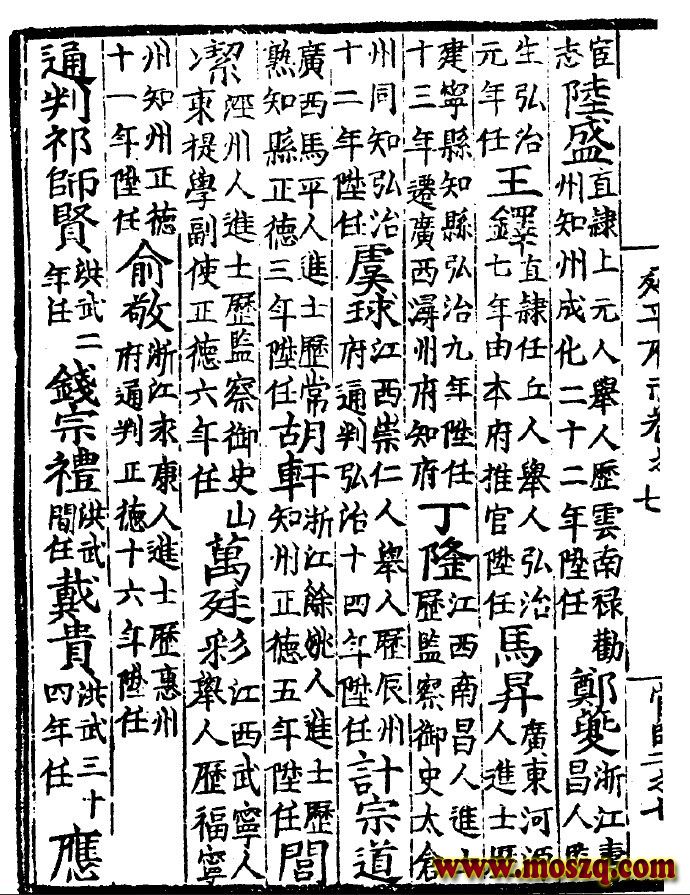 宦志陸盛直隷上元人舉人歷雲南禄勸州知州成化二十二年陞任鄭夔浙江昌人
生弘治元年任王鐸直隷任丘人舉人弘治七年由本府推官陞任馬昇廣東河人進士歷
建寧縣知縣弘治九年陞任十三年遷廣西潯州府知府丁隆江西南昌人進士歷監察御史太倉
州同知弘治十二年陞任虞球江西崇仁人舉人歷辰州府通判弘治十四年陞任計宗道
廣西馬平人進士歷常熟知縣正德三年陞任胡軒浙江餘姚人進士歷知州正德五年陞任閭
潔涇州人進士歷監察御史山東提學副使正德六年任萬廷彩江西武寧人舉人歷福寧
州知州正德十一年陞任俞敬浙江永康人進士歷惠州府通判正德十六年陞任
通判祁師賢洪武二年任錢宗禮洪武間任戴貴洪武三十四年任應
www.moszq.com